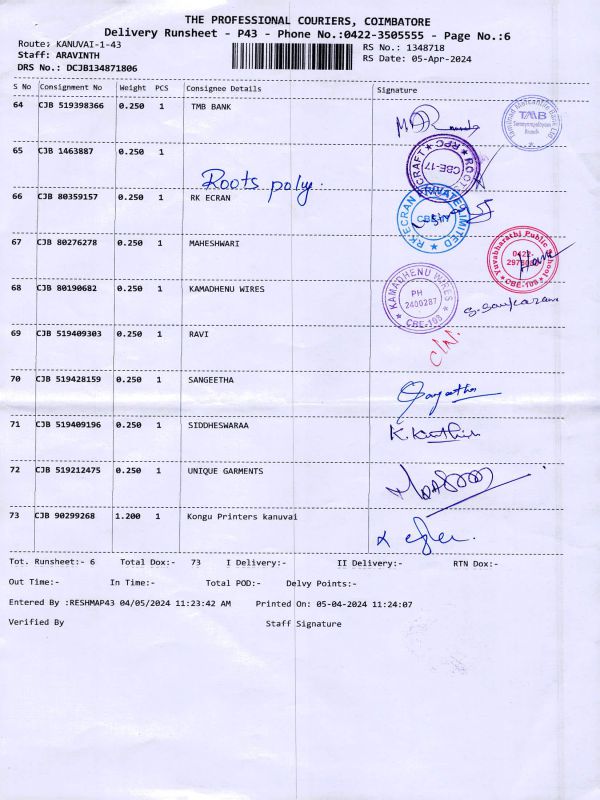 THE PROFESSIONAL COURIERS, COIMBATORE
Delivery Runsheet - P43 - Phone No.:0422-3505555 - Page No.:6
Route: KANUVAI-1-43 RS No.: 1348718
Staff: ARAVINTH RS Date: 05-Apr-2024
DRS No.: DCJB134871806
S No Consignment No Weight PCS Consignee Details Signature
64 CJB 519398366 0.250 1 TMB BANK
TMB
65 CJB 1463887 0.250 1
Roots poly.
ROOTS RPC
CBE-17
66 CJB 80359157 0.250 1 RK ECRAN
RK ECRAN PRIVATE LIMITED
67 CJB 80276278 0.250 1 MAHESHWARI
Yuvabharathi Public School
0422
CBE-109
68 CJB 80190682 0.250 1 KAMADHENU WIRES
KAMADHENU WIRES
PH
2400287
CBE-108
S. Sankaran
69 CJB 519409303 0.250 1 RAVI
70 CJB 519428159 0.250 1 SANGEETHA
Sangeetha
71 CJB 519409196 0.250 1 SIDDHESWARAA
72 CJB 519212475 0.250 1 UNIQUE GARMENTS
73 CJB 90299268 1.200 1 Kongu Printers kanuvai
Tot. Runsheet:- 6 Total Dox:- 73 I Delivery:- II Delivery:- RTN Dox:-
Out Time:- In Time:- Total POD:- Delvy Points:-
Entered By :RESHMAP43 04/05/2024 11:23:42 AM Printed On: 05-04-2024 11:24:07
Verified By Staff Signature